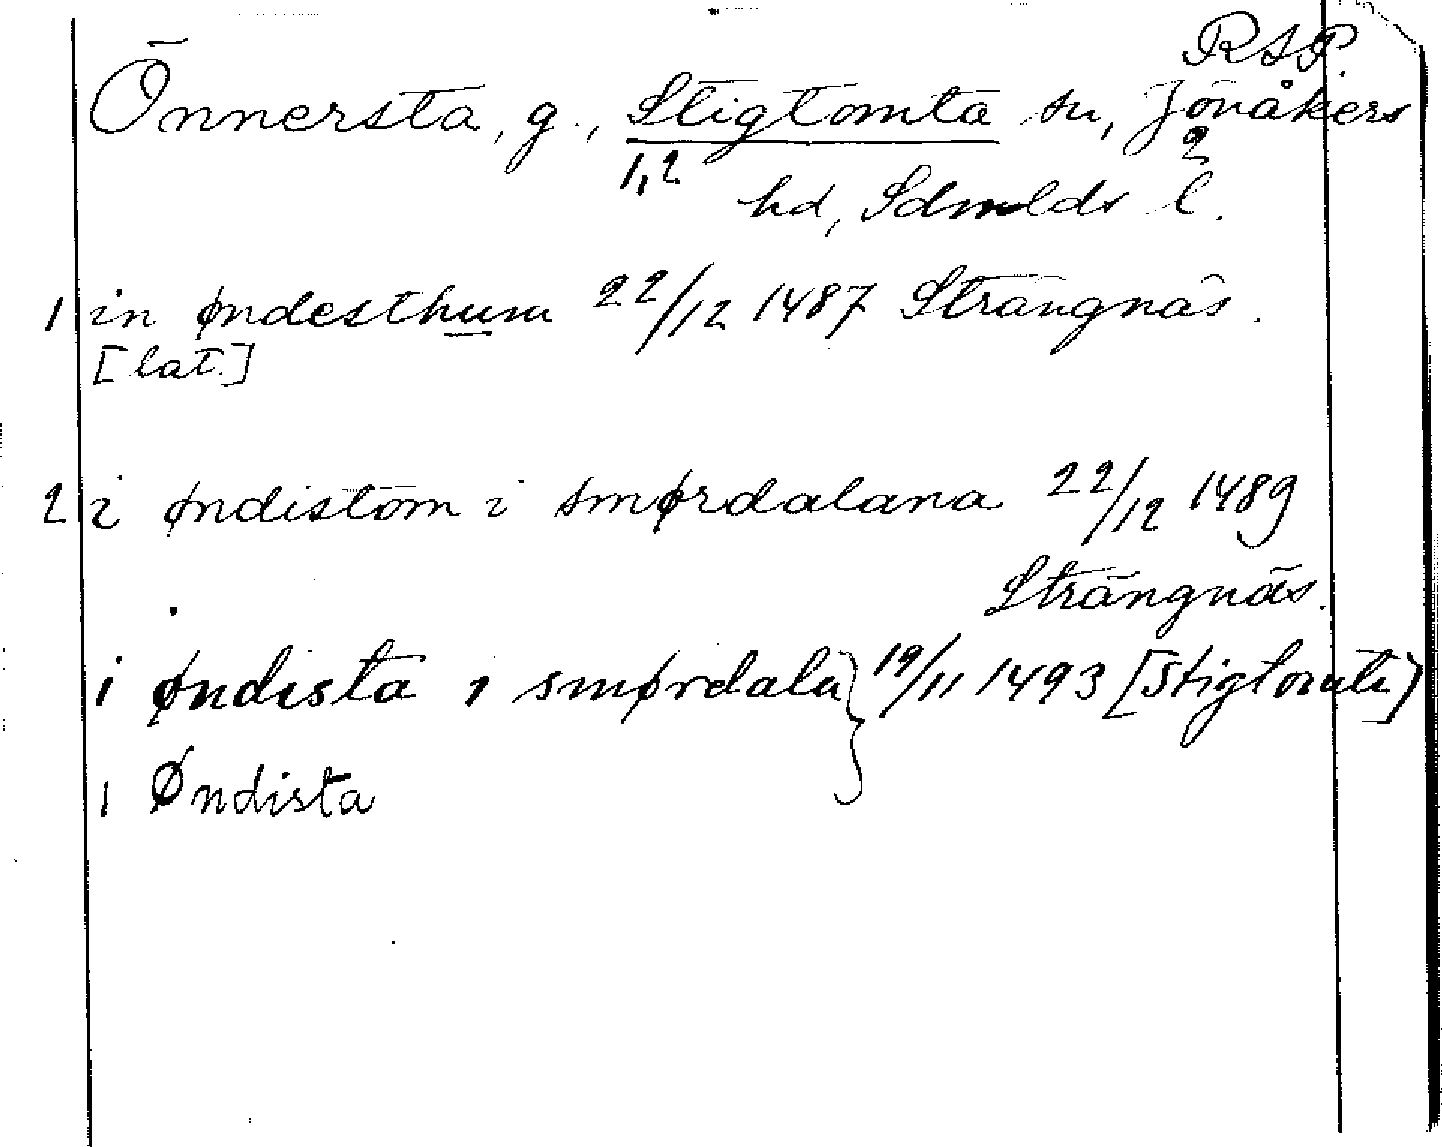 RAP.
Önnersta, g., Stigtomta sn, Jönåkers
1,2 2
hd, Sdmlds l.
1 in øndesthum 22/12 1487 Strängnäs.
[lat.]
2 i øndistom i smørdalana 22/12 1489
Strängnäs.
i øndista i smørdala } 19/11 1493 [Stigtomta]
i Øndista